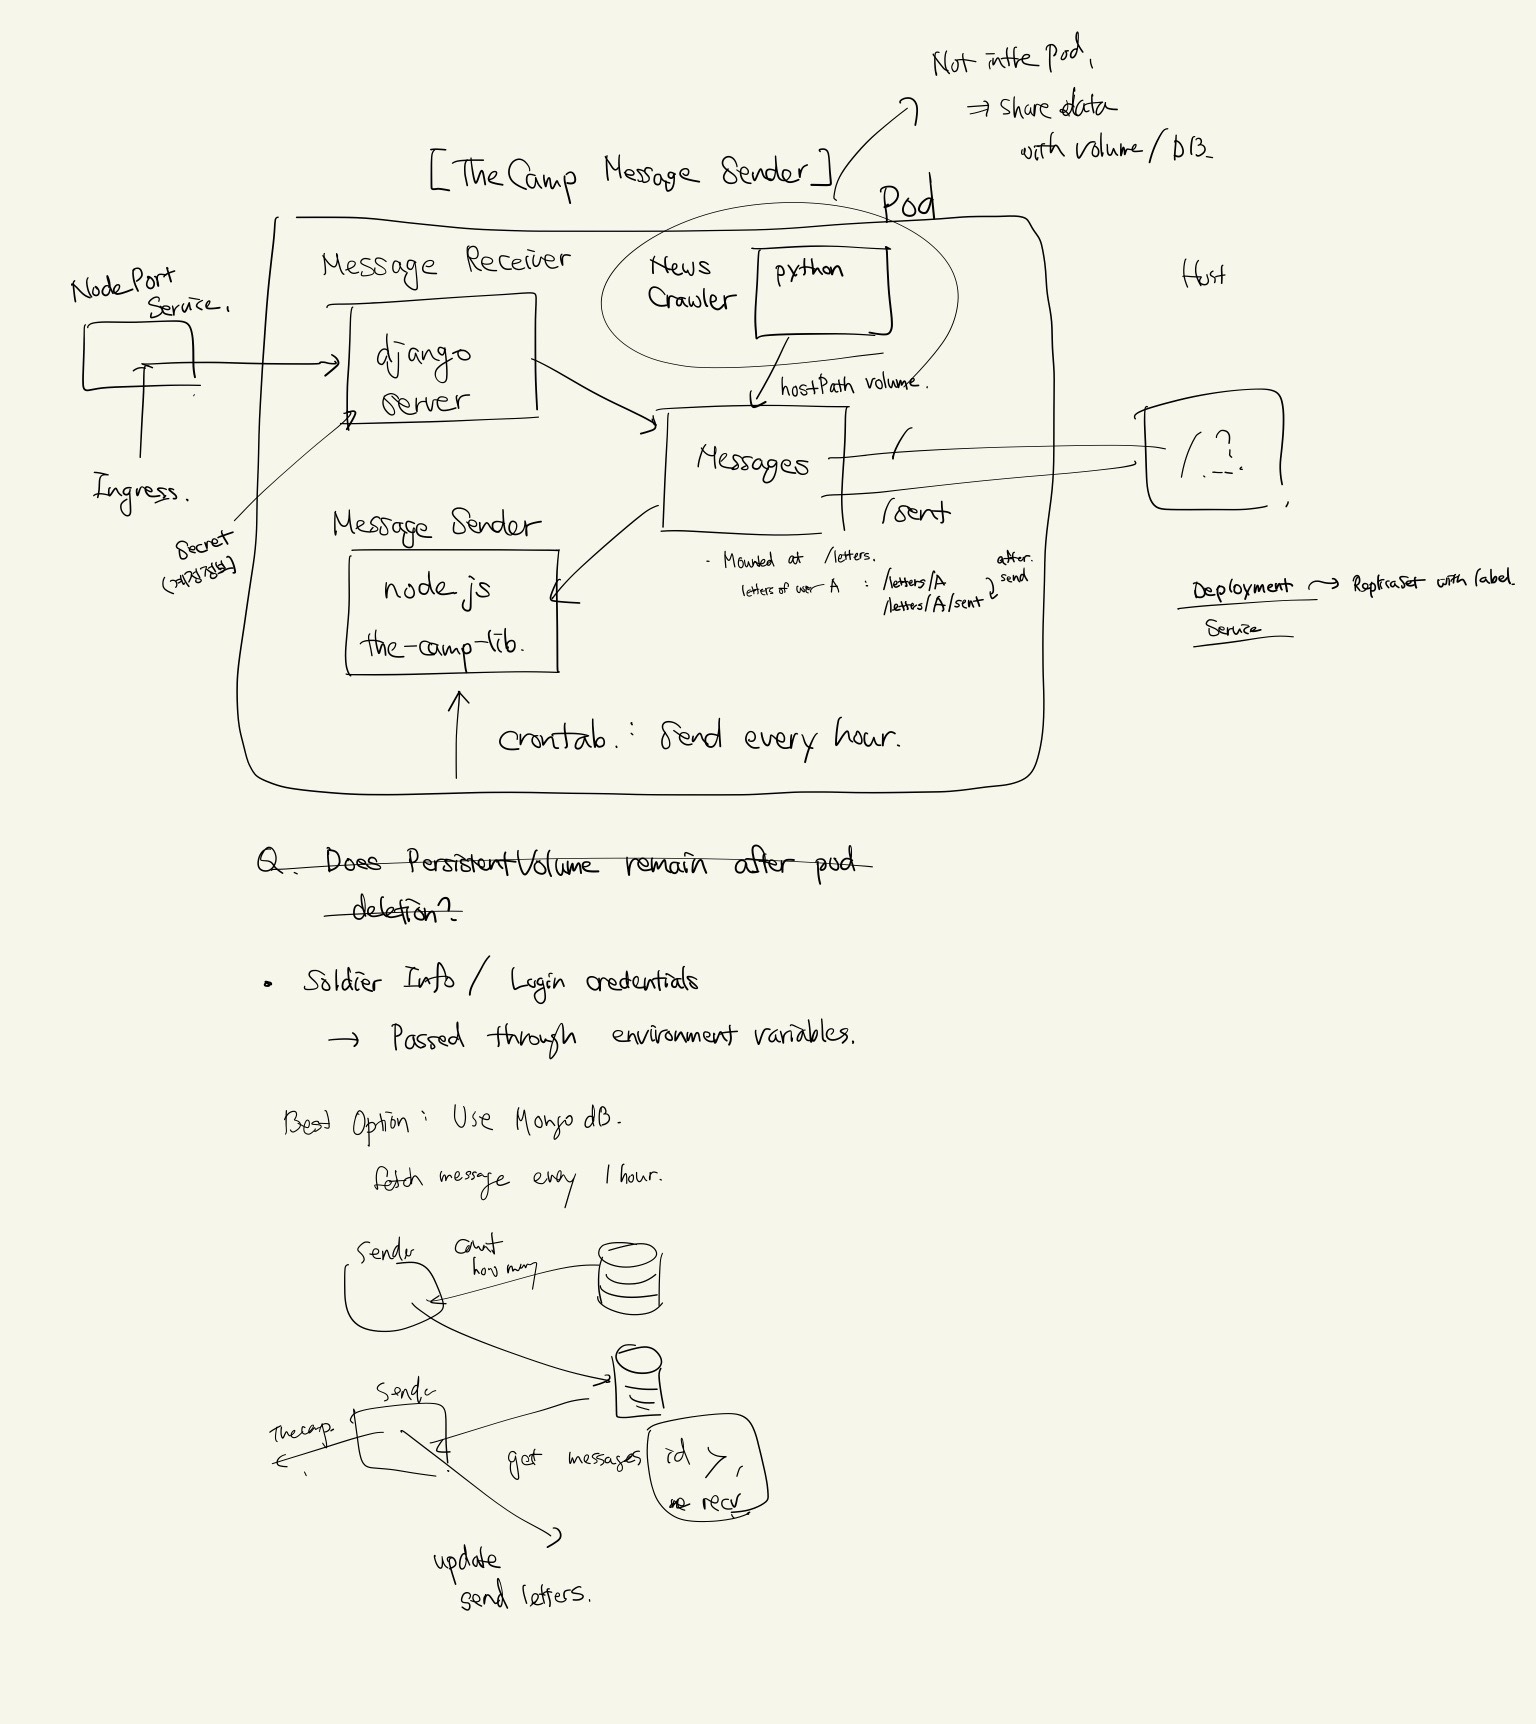 Not in the pod,
⇒ share data
with volume / DB
[TheCamp Message Sender]
Pod
NodePort
Service.
Message Receiver
News
Crawler
python
Host
django
server
hostPath volume.
Messages
/
/
Ingress.
/sent
Secret
(계정정보)
Message Sender
node.js
the-camp-lib.
- Mounted at /letters.
letters of user A : /letters/A
/letters/A/sent
after.
send
Deployment → ReplicaSet with label.
Service
crontab. : Send every hour.
Q. Does PersistentVolume remain after pod
deletion?
• Soldier Info / Login credentials
→ Passed through environment variables.
Best Option : Use MongoDB.
fetch message every 1 hour.
Sender
count
how many
Sender
Thecamp.
get messages
id >,
recv
update
send letters.